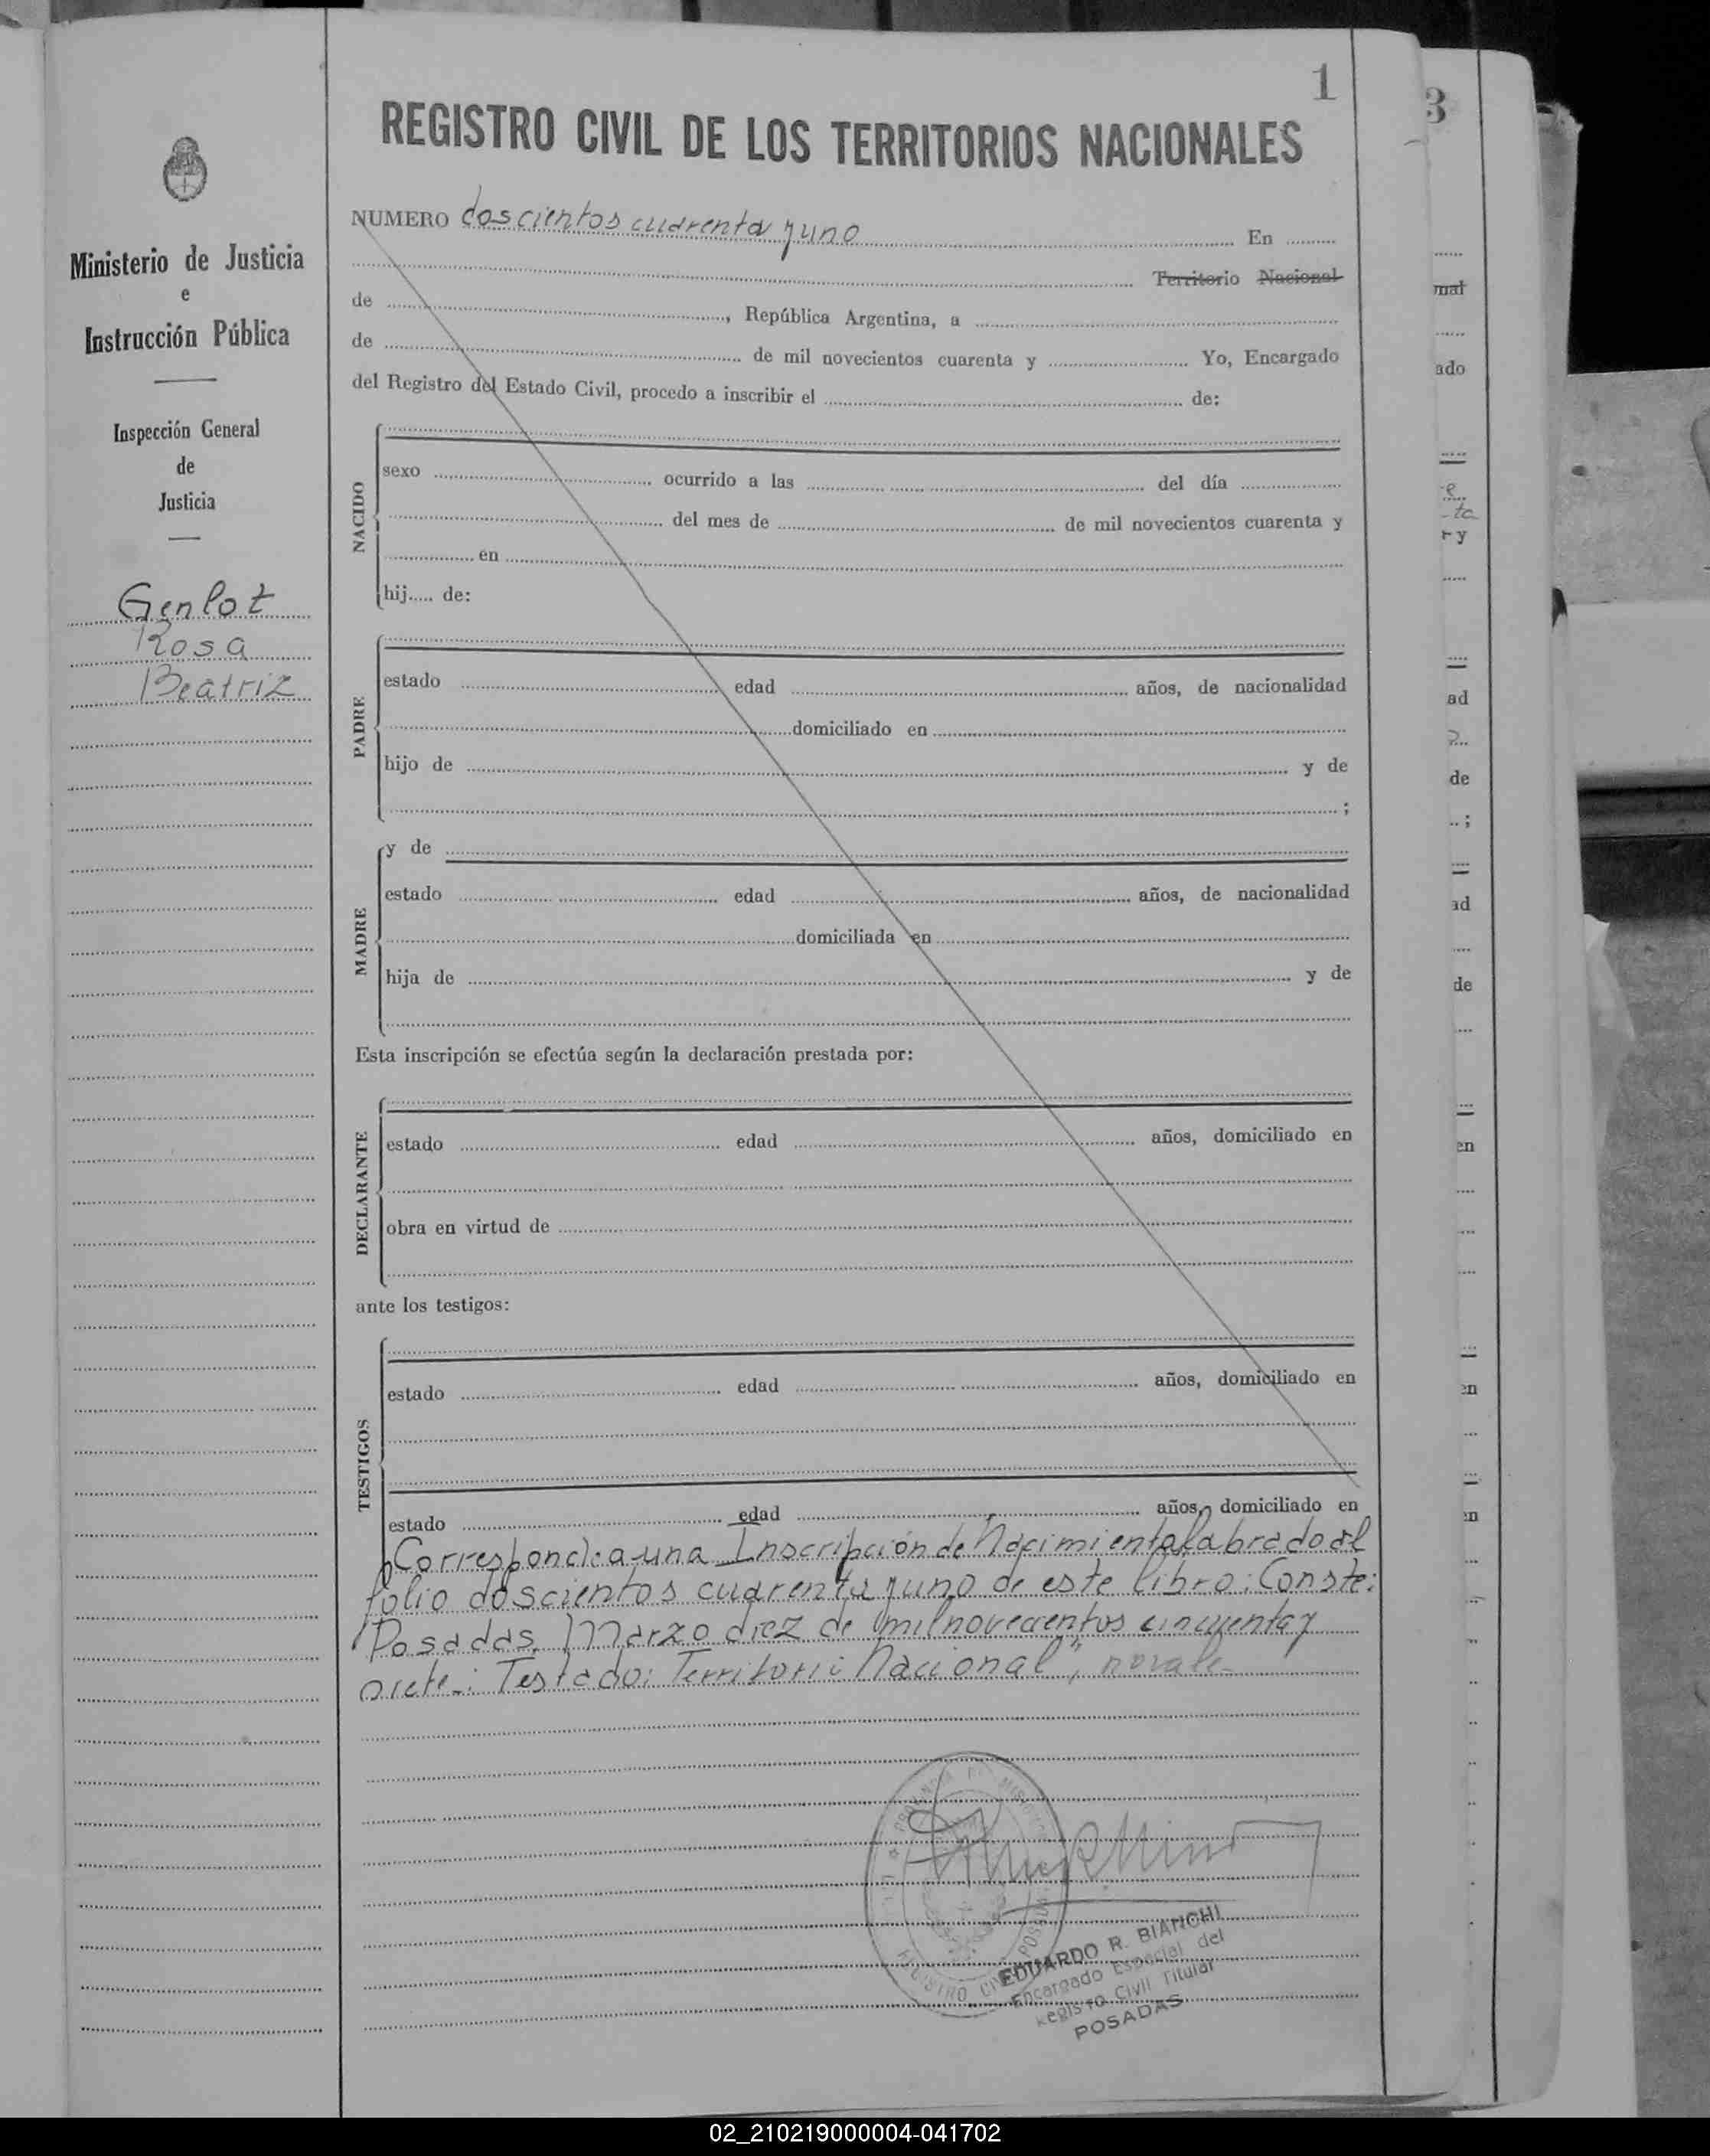 1
3
REGISTRO CIVIL DE LOS TERRITORIOS NACIONALES
Ministerio de Justicia
e
Instrucción Pública
Inspección General
de
Justicia
Genlot
Rosa
Beatriz
NUMERO doscientos cuarenta y uno En
Territorio Nacional
de , República Argentina, a
de de mil novecientos cuarenta y Yo, Encargado
del Registro del Estado Civil, procedo a inscribir el de:
NACIDO
sexo ocurrido a las del día
del mes de de mil novecientos cuarenta y
en
hij..... de:
PADRE
estado edad años, de nacionalidad
domiciliado en
hijo de y de
;
MADRE
y de
estado edad años, de nacionalidad
domiciliada en
hija de y de
Esta inscripción se efectúa según la declaración prestada por:
DECLARANTE
estado edad años, domiciliado en
obra en virtud de
ante los testigos:
TESTIGOS
estado edad años, domiciliado en
estado edad años, domiciliado en
Corresponde a una Inscripción de Nacimiento labrado al
folio doscientos cuarenta y uno de este libro: Conste:
Posadas, Marzo diez de mil novecientos cincuenta y
siete.: Testado: Territorio Nacional", no vale-
REGISTRO CIVIL POSADAS
EDUARDO R. BIANCHI
Encargado Especial del
Registro Civil Titular
POSADAS
nal
ado
ta
r y
ad
de
;
ad
de
en
en
en
02_210219000004-041702